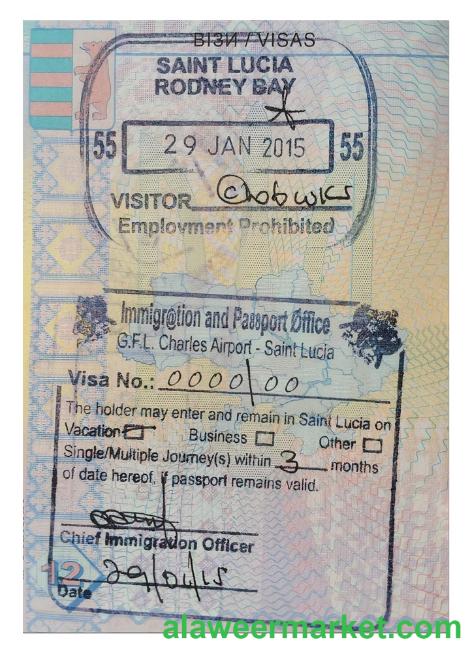 ВІЗИ / VISAS
SAINT LUCIA
RODNEY BAY
55 29 JAN 2015 55
VISITOR
Employment Prohibited
Immigr@tion and Passport Office
G.F.L. Charles Airport - Saint Lucia
Visa No.: 0000/00
The holder may enter and remain in Saint Lucia on
Vacation Business Other
Single/Multiple Journey(s) within 3 months
of date hereof, if passport remains valid.
Chief Immigration Officer
12
Date 29/01/15
alaweermarket.com